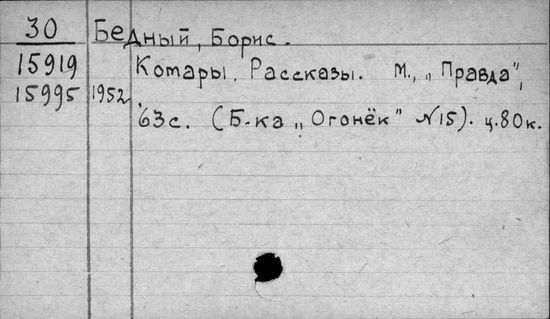 30 Бедный, Борис.
15919 Комары. Рассказы. М., „Правда",
15995 1952
63с. (Б-ка „Огонёк" N15). ц.80к.